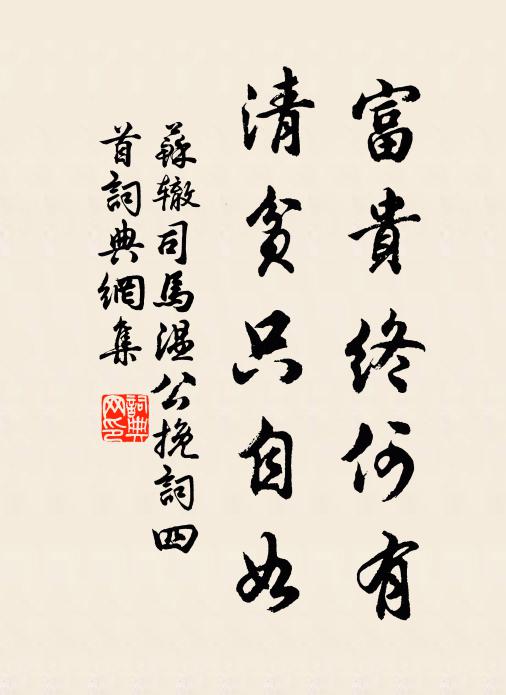 富貴終何有
清貧只自如
蘇轍司馬温公挽詞四
首詞典網集
詞典
网印